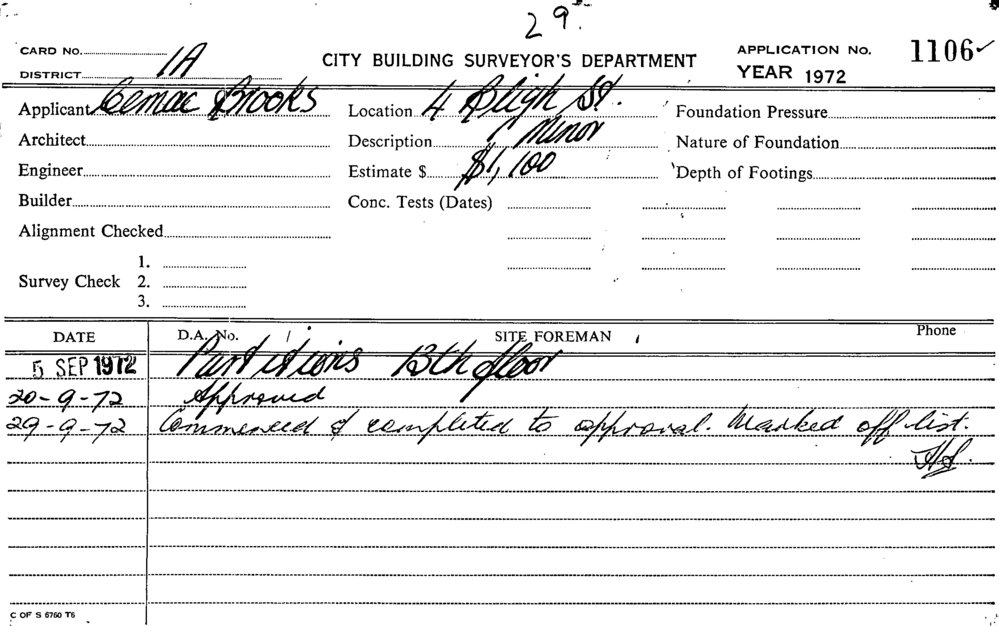 29.
CARD No.
DISTRICT 1A
CITY BUILDING SURVEYOR'S DEPARTMENT
APPLICATION No. 1106 ✓
YEAR 1972
Applicant Cemac Brooks
Location 4 Bligh St.
Foundation Pressure
Architect
Description Minor
Nature of Foundation
Engineer
Estimate $ $1,100
Depth of Footings
Builder
Conc. Tests (Dates)
Alignment Checked
Survey Check 1.
2.
3.
DATE D.A. No. SITE FOREMAN Phone
5 SEP 1972 Partitions 13th floor
20-9-72 Approved
29-9-72 Commenced & completed to approval. Marked off list.
C OF S 6760 T6